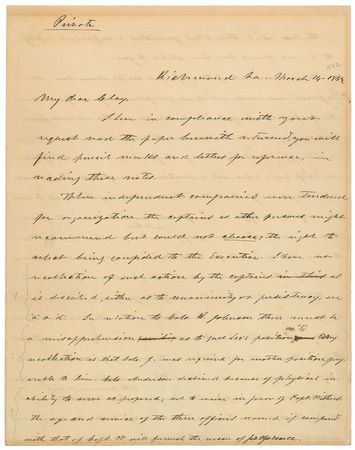 Private
Richmond Va. March 16. 1862
My dear Clay,
I have in compliance with your
request read the paper herewith returned, you will
find pencil marks and letters for reference, in
reading these notes.
When independent companies were tendered
for organization, the captains as other persons might
recommend but could not choose; the right to
select being confided to the Executive. I have no
recollection of such action by the captains
as
is described, either as to unanimity or persistency, see
In relation to Col. Johnson there must be
a misapprehension as to position My
recollection is that Col. J. was required for another position pref-
erable to him. Col. Anderson declined because of physical in-
ability to serve as proposed, not to serve in favor of Capt. Withers.
The age and service of the three officers named if compared
with that of Capt. W. will furnish the reason of preference.